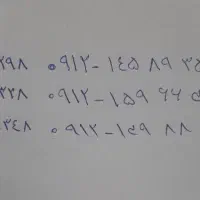 ۲۹۸ ۰۹۱۲-۱۴۵ ۸۹ ۳۵
۳۲۸ ۰۹۱۲-۱۵۹ ۶۶
۳۴۸ ۰۹۱۲-۱۴۹ ۸۸